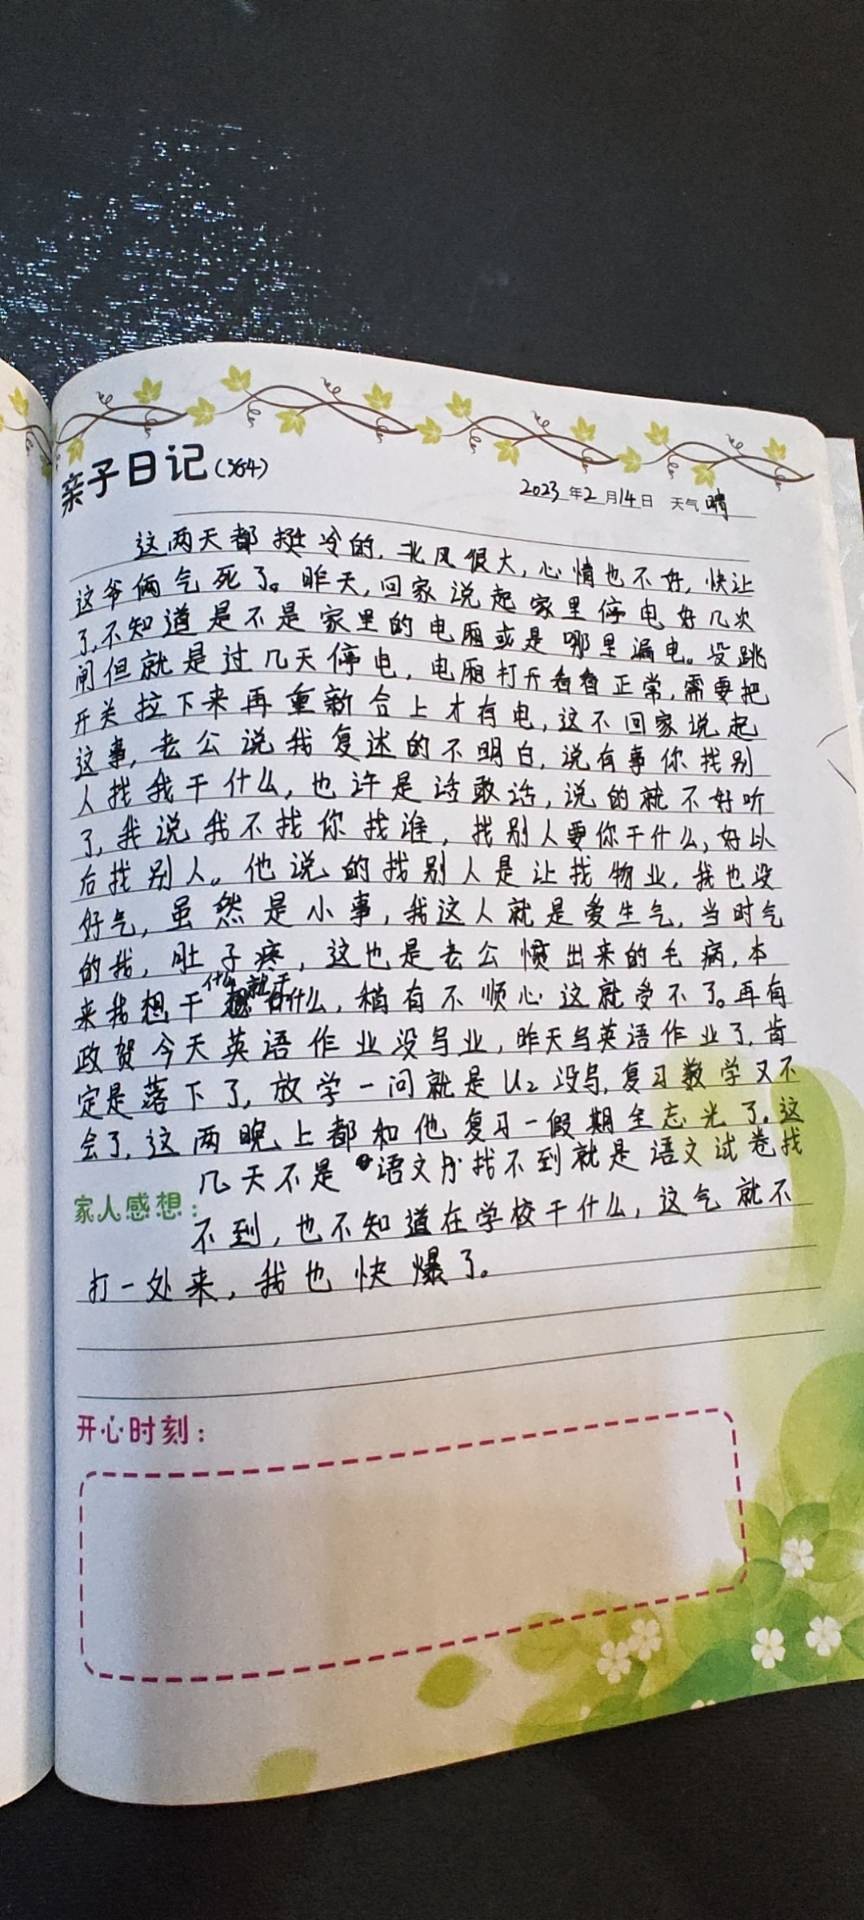 亲子日记(364)
2023年2月14日 天气 晴
这两天都挺冷的,北风很大,心情也不好,快让
这爷俩气死了。昨天,回家说起家里停电好几次
了,不知道是不是家里的电厢或是哪里漏电。没跳
闸但就是过几天停电,电厢打开看看正常,需要把
开关拉下来再重新合上才有电,这不回家说起
这事,老公说我复述的不明白,说有事你找别
人找我干什么,也许是话敢话,说的就不好听
了,我说我不找你找谁,找别人要你干什么,好以
后找别人。他说的找别人是让找物业,我也没
好气,虽然是小事,我这人就是爱生气,当时气
的我,肚子疼,这也是老公惯出来的毛病,本
来我想干什么就干什么,稍有不顺心这就受不了。再有
政贺今天英语作业没写业,昨天写英语作业了,肯
定是落下了,放学一问就是U2没写,复习数学又不
会了,这两晚上都和他复习一假期全忘光了。这
几天不是语文书找不到就是语文试卷找
家人感想:
不到,也不知道在学校干什么,这气就不
打一处来,我也快爆了。
开心时刻: